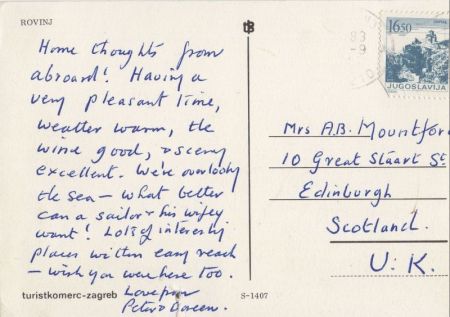 ROVINJ
Home thoughts from
abroad! Having a
very pleasant time,
weather warm, the
wine good, & scenery
excellent. We're overlooking
the sea — what better
can a sailor & his wifey
want! Lots of interesting
places within easy reach
— wish you were here too.
Love from
Peter & Doreen.
turistkomerc-zagreb
S-1407
83
-9
16,50
JUGOSLAVIJA
Mrs A.B. Mountford
10 Great Stuart St
Edinburgh
Scotland.
U.K.